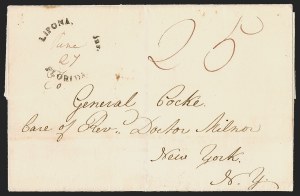 LIPONA,
June
27
FLORIDA
25
General Cocke
Care of Rev. Doctor Milnor
New York.
N.Y.